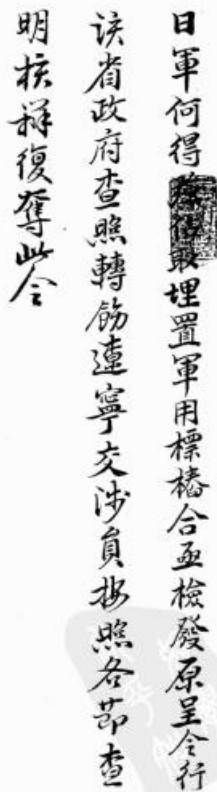 日軍何得取埋置軍用標樁合亟檢發原呈令行
該省政府查照轉飭遼寧交涉員按照各節查
明核辦復奪此令